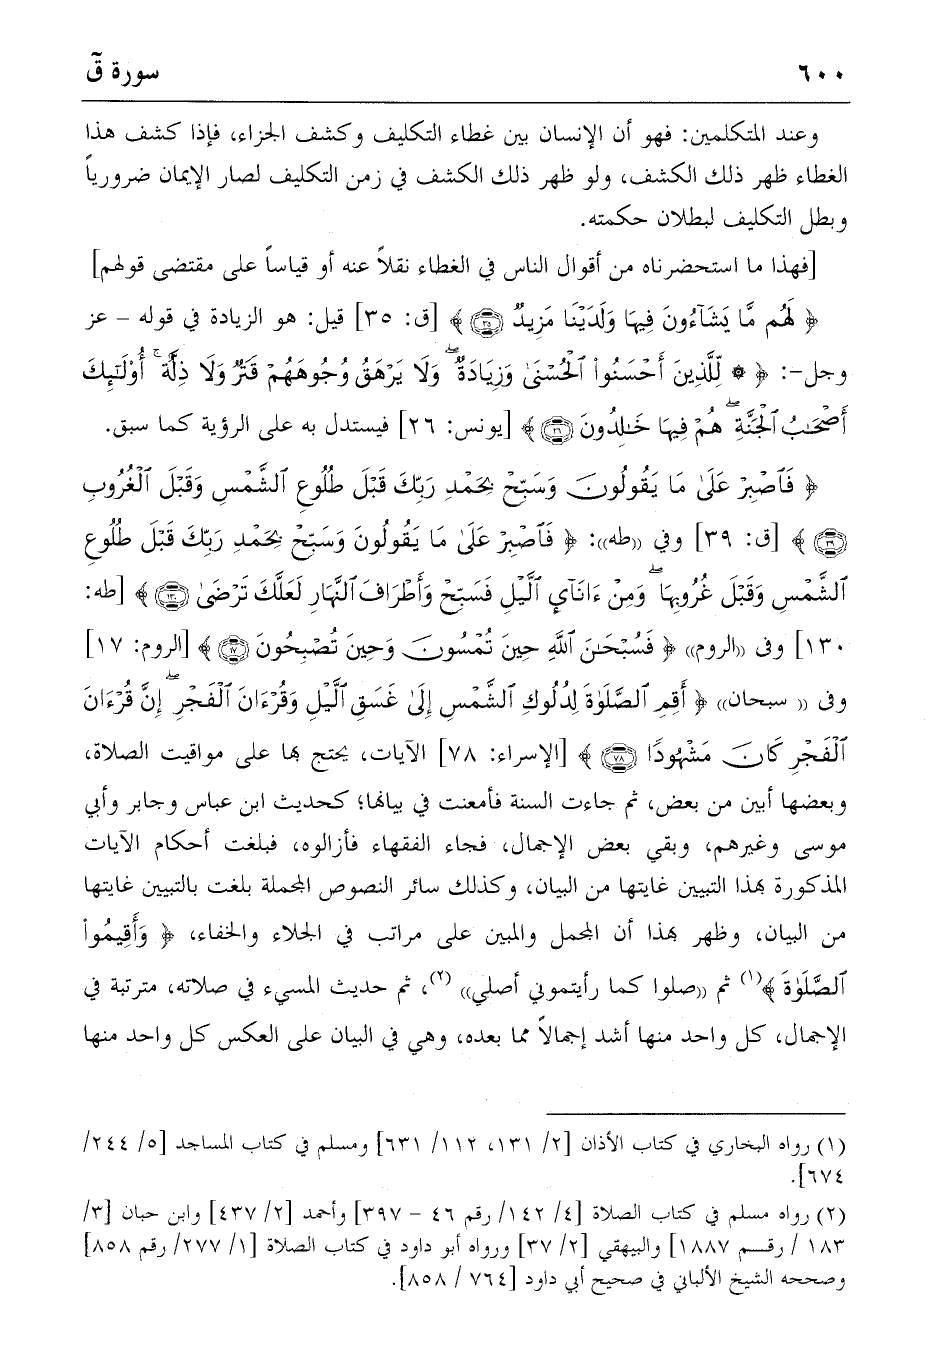 ٦٠٠
سورة قٓ
وعند المتكلمين: فهو أن الإنسان بين غطاء التكليف وكشف الجزاء، فإذا كشف هذا
الغطاء ظهر ذلك الكشف، ولو ظهر ذلك الكشف في زمن التكليف لصار الإيمان ضرورياً
وبطل التكليف لبطلان حكمته.
[فهذا ما استحضرناه من أقوال الناس في الغطاء نقلاً عنه أو قياساً على مقتضى قولهم]
﴿ لَهُم مَّا يَشَآءُونَ فِيهَا وَلَدَيْنَا مَزِيدٌ ﴿٣٥﴾ ﴾ [ق: ٣٥] قيل: هو الزيادة في قوله – عز
وجل-: ﴿ ۞ لِّلَّذِينَ أَحْسَنُوا۟ ٱلْحُسْنَىٰ وَزِيَادَةٌ ۖ وَلَا يَرْهَقُ وُجُوهَهُمْ قَتَرٌ وَلَا ذِلَّةٌ ۚ أُو۟لَـٰٓئِكَ
أَصْحَـٰبُ ٱلْجَنَّةِ ۖ هُمْ فِيهَا خَـٰلِدُونَ ﴿٢٦﴾ ﴾ [يونس: ٢٦] فيستدل به على الرؤية كما سبق.
﴿ فَٱصْبِرْ عَلَىٰ مَا يَقُولُونَ وَسَبِّحْ بِحَمْدِ رَبِّكَ قَبْلَ طُلُوعِ ٱلشَّمْسِ وَقَبْلَ ٱلْغُرُوبِ
﴿٣٩﴾ ﴾ [ق: ٣٩] وفي ((طه)): ﴿ فَٱصْبِرْ عَلَىٰ مَا يَقُولُونَ وَسَبِّحْ بِحَمْدِ رَبِّكَ قَبْلَ طُلُوعِ
ٱلشَّمْسِ وَقَبْلَ غُرُوبِهَا ۖ وَمِنْ ءَانَآئِ ٱلَّيْلِ فَسَبِّحْ وَأَطْرَافَ ٱلنَّهَارِ لَعَلَّكَ تَرْضَىٰ ﴿١٣٠﴾ ﴾ [طه:
١٣٠] وفى ((الروم)) ﴿ فَسُبْحَـٰنَ ٱللَّهِ حِينَ تُمْسُونَ وَحِينَ تُصْبِحُونَ ﴿١٧﴾ ﴾ [الروم: ١٧]
وفى (( سبحان)) ﴿ أَقِمِ ٱلصَّلَوٰةَ لِدُلُوكِ ٱلشَّمْسِ إِلَىٰ غَسَقِ ٱلَّيْلِ وَقُرْءَانَ ٱلْفَجْرِ ۖ إِنَّ قُرْءَانَ
ٱلْفَجْرِ كَانَ مَشْهُودًا ﴿٧٨﴾ ﴾ [الإسراء: ٧٨] الآيات، يحتج بها على مواقيت الصلاة،
وبعضها أبين من بعض، ثم جاءت السنة فأمعنت في بيانها؛ كحديث ابن عباس وجابر وأبي
موسى وغيرهم، وبقي بعض الإجمال، فجاء الفقهاء فأزالوه، فبلغت أحكام الآيات
المذكورة بهذا التبيين غايتها من البيان، وكذلك سائر النصوص المجملة بلغت بالتبيين غايتها
من البيان، وظهر بهذا أن المجمل والمبين على مراتب في الجلاء والخفاء، ﴿ وَأَقِيمُوا۟
ٱلصَّلَوٰةَ ﴾(١) ثم ((صلوا كما رأيتموني أصلي)) (٢)، ثم حديث المسيء في صلاته، مترتبة في
الإجمال، كل واحد منها أشد إجمالاً مما بعده، وهي في البيان على العكس كل واحد منها
(١) رواه البخاري في كتاب الأذان [٢/ ١٣١، ١١٢/ ٦٣١] ومسلم في كتاب المساجد [٥/ ٢٤٤/
٦٧٤].
(٢) رواه مسلم في كتاب الصلاة [٤/ ١٤٢/ رقم ٤٦ – ٣٩٧] وأحمد [٢/ ٤٣٧] وابن حبان [٣/
١٨٣ / رقـــم ١٨٨٧] والبيهقي [٢/ ٣٧] ورواه أبو داود في كتاب الصلاة [١/ ٢٧٧/ رقم ٨٥٨]
وصححه الشيخ الألباني في صحيح أبي داود [٧٦٤ / ٨٥٨].